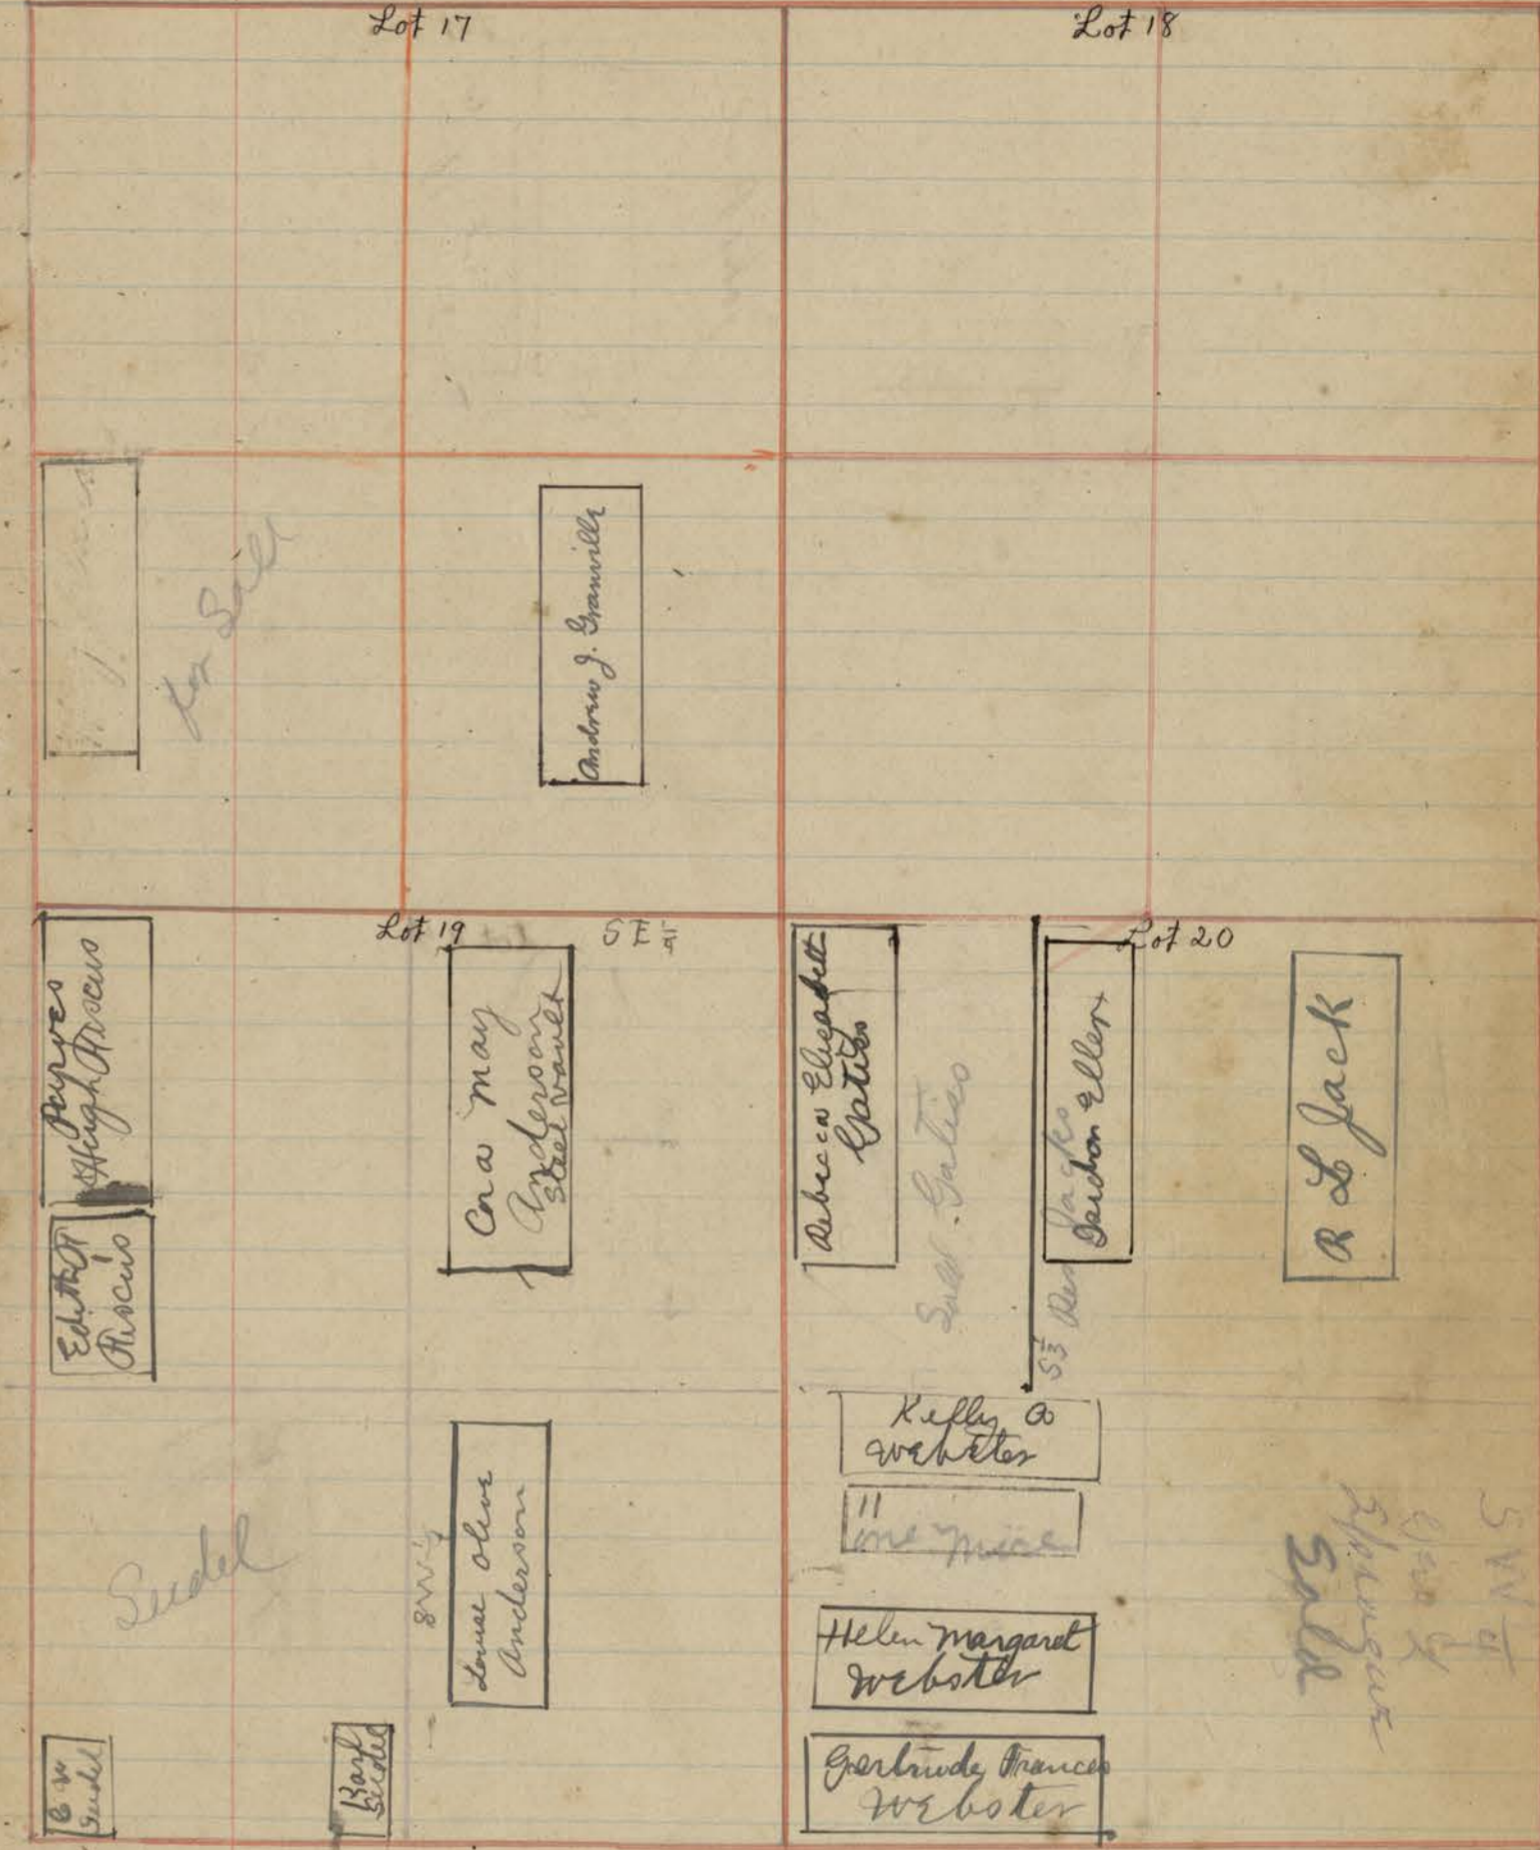 Lot 17
Lot 18
For Sale
Andrew J. Granville
Lot 19
SE 1/4
Lot 20
Purves
Hugh Hiscus
Edith H
Hiscus
Cora May
Anderson
Steel Vault
Rebecca Elizabett
Gaties
Sold. Gaties
S 1/3
Ellen
R L Jack
Kelly A
Webster
"
one more
Helen Margaret
Webster
Gertrude Frances
Webster
Seidel
SW 1/4
Louise Olive
Anderson
C W
Seidel
Karl
Seidel
SW 1/4
Sold